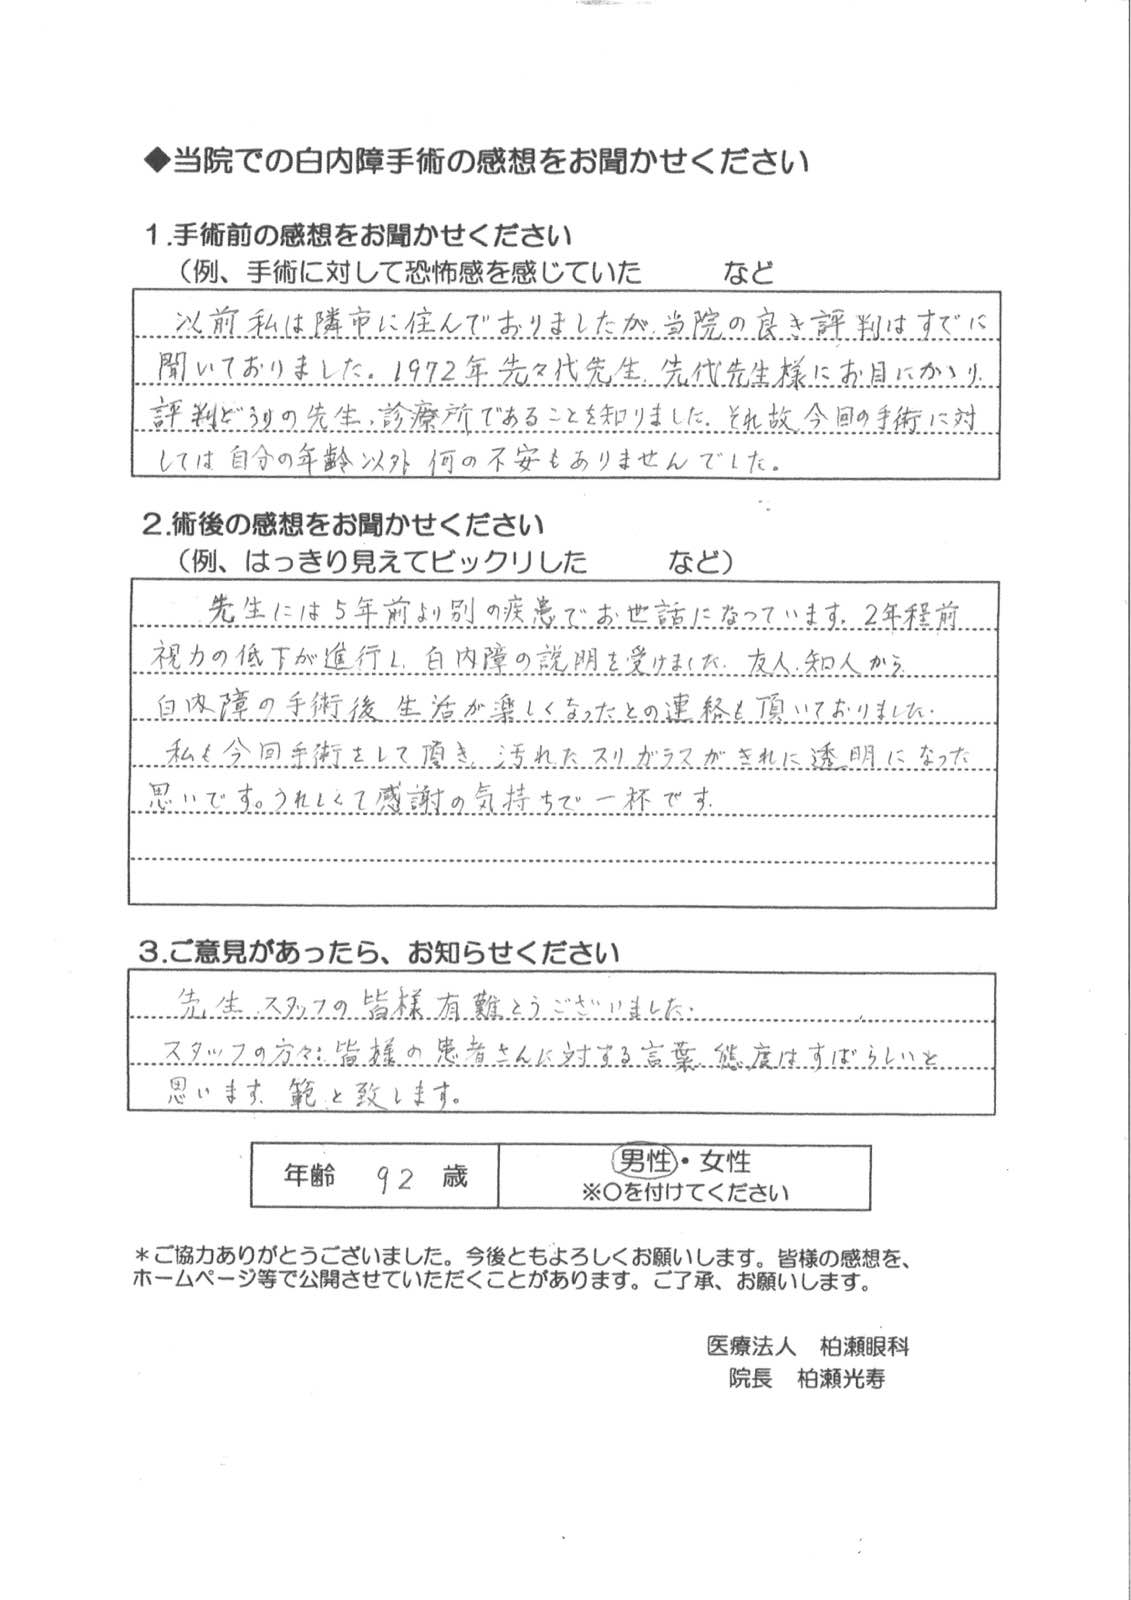 ◆当院での白内障手術の感想をお聞かせください
1.手術前の感想をお聞かせください
（例、手術に対して恐怖感を感じていた　　　など
以前私は隣市に住んでおりましたが、当院の良き評判はすでに
聞いておりました。1972年先々代先生、先代先生様にお目にかゝり、
評判どうりの先生、診療所であることを知りました。それ故、今回の手術に対
しては自分の年齢以外何の不安もありませんでした。
2.術後の感想をお聞かせください
（例、はっきり見えてビックリした　　　など）
先生には5年前より別の疾患でお世話になっています。2年程前
視力の低下が進行し、白内障の説明を受けました。友人、知人から、
白内障の手術後 生活が楽しくなったとの連絡も頂いておりました。
私も今回手術をして頂き、汚れたスリガラスがきれに透明になった
思いです。うれしくて感謝の気持ちで一杯です。
3.ご意見があったら、お知らせください
先生、スタッフの皆様有難とうございました。
スタッフの方々:皆様の患者さんに対する言葉、態度はすばらしいと
思います、範と致します。
年齢 92 歳
男性・女性
※○を付けてください
＊ご協力ありがとうございました。今後ともよろしくお願いします。皆様の感想を、
ホームページ等で公開させていただくことがあります。ご了承、お願いします。
医療法人　柏瀬眼科
院長　柏瀬光寿